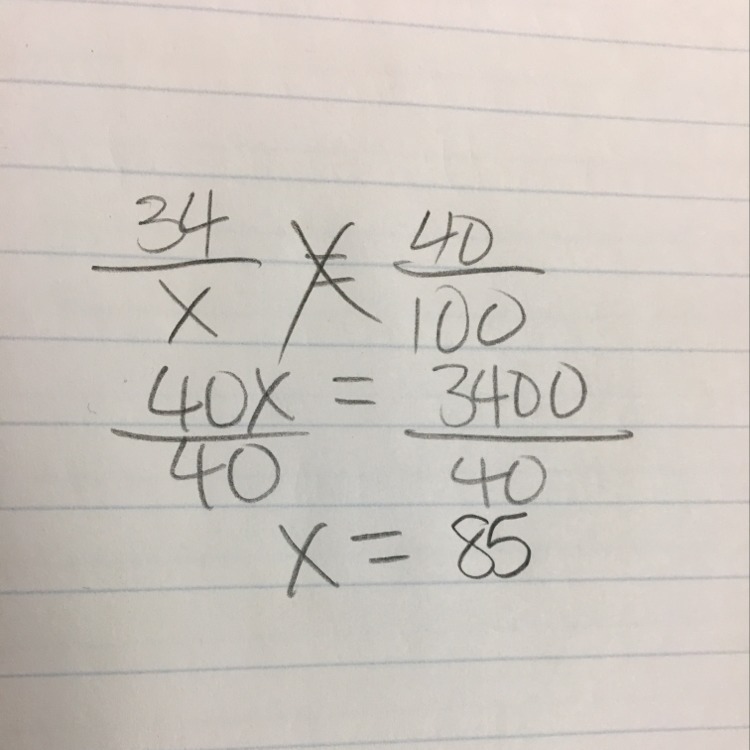 34/x = 40/100
40x/40 = 3400/40
x = 85